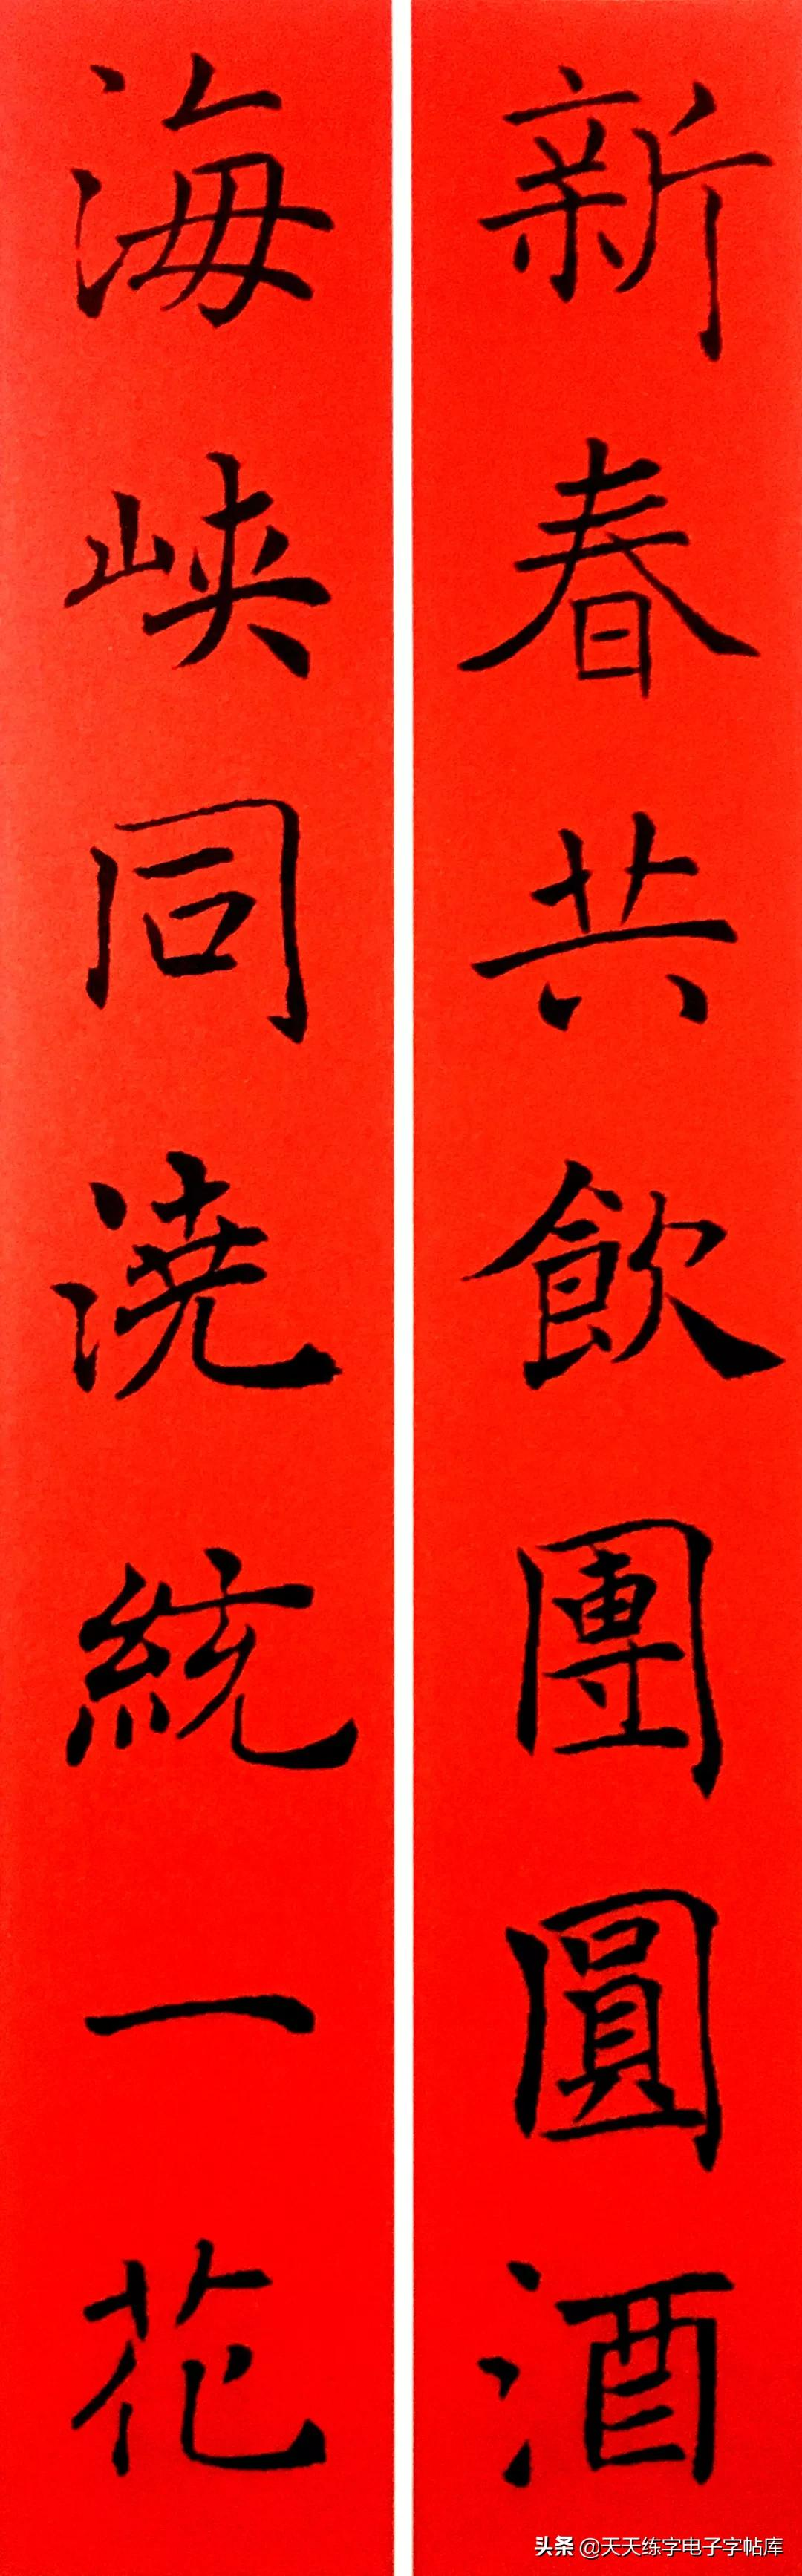 新春共飲團圓酒
海峽同澆統一花
头条 @天天练字电子字帖库